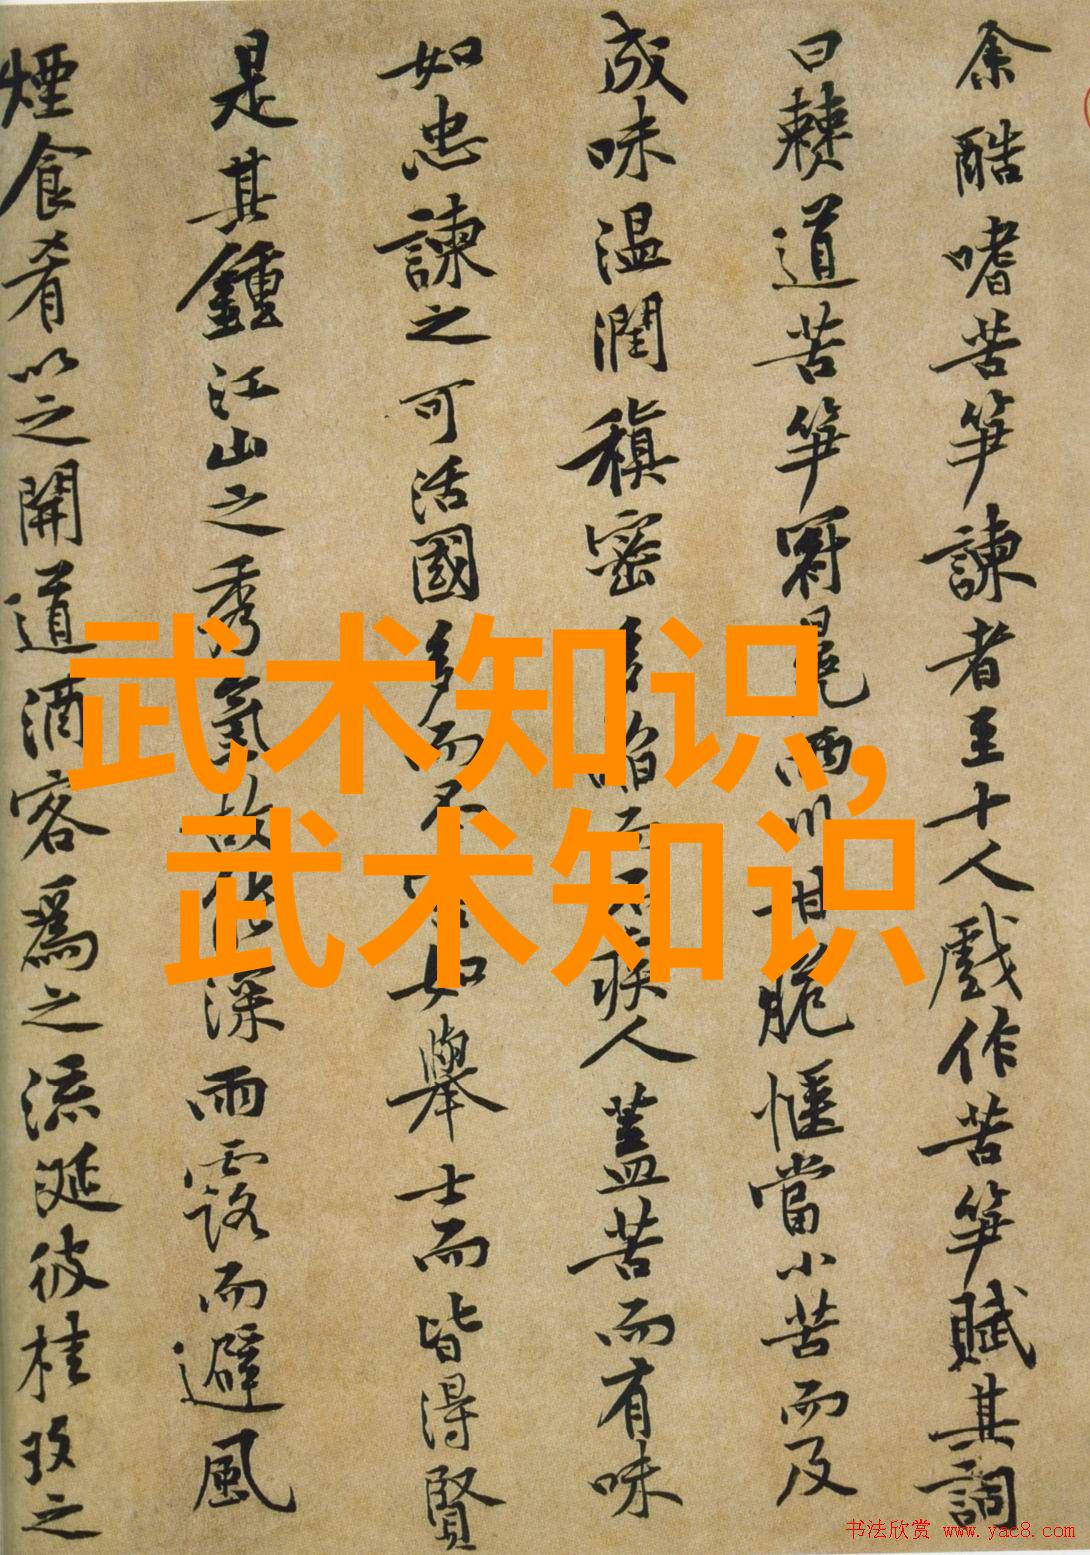 余酷嗜苦笋諫者至十人戲作苦笋賦其詞
曰僰道苦笋冠冕兩川甘脆愜當小苦而及
成味温潤稹密多啗而疾人蓋苦而有味
如忠諫之可活國多而不如舉士而皆得賢
是其鍾江山之秀氣故深雨露而避風
煙食肴以之開道酒客爲之流涎彼桂玫之
武术知识,
武术知识
书法欣赏 www.yac8.com